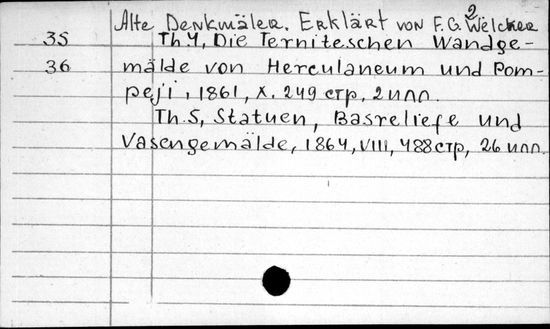 2
Alte Denkmäler. Erklärt von F.G. Welcker
35 Th.4, Die Terniteschen Wandge-
36 mälde von Herculaneum und Pom-
peji, 1861, X. 249 стр, 2 илл.
Th.5, Statuen, Basreliefe und
Vasengemälde, 1864, VIII, 488 стр, 26 илл.